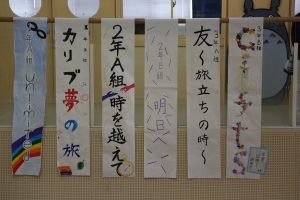 カリブ夢の旅
2年A組 時を越えて
2年B組
明日へ
3年A組
友～旅立ちの時～
3年B組